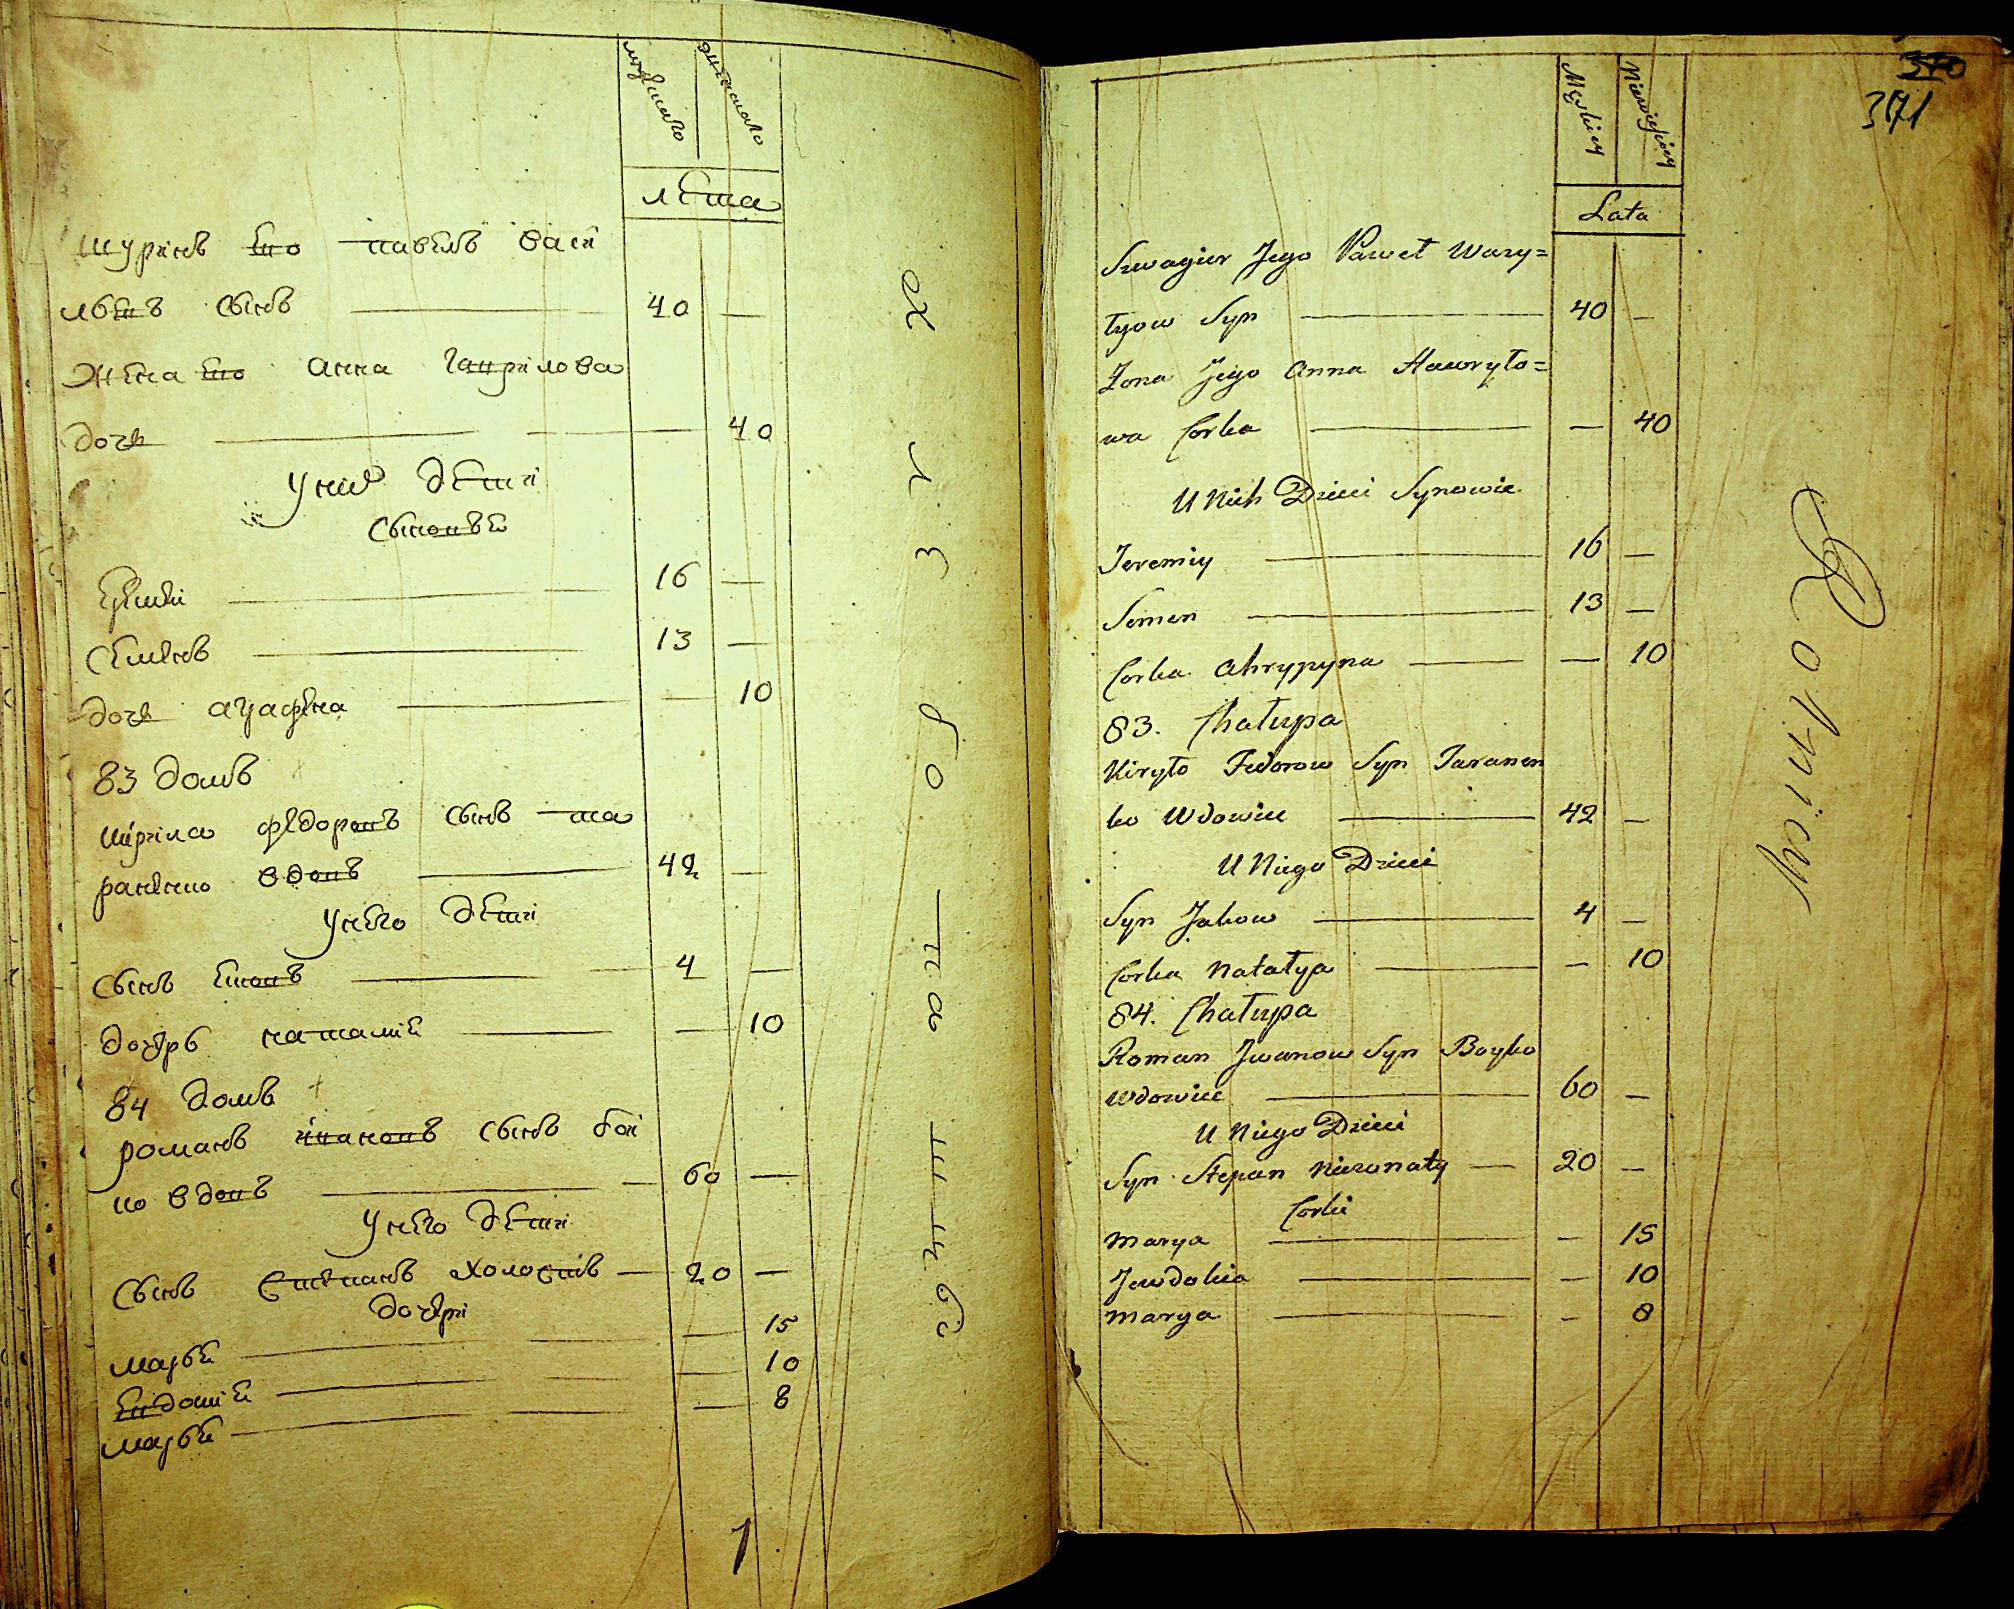 мужеска
женска
лѣта
шуринъ его павелъ васи
льевъ сынъ — 40 —
жена его анна гаврилова
дочь — 40
у нихъ дѣти
сыновьѣ
еремѣй — 16 —
семенъ — 13 —
дочь аграфѣна — 10
83 домъ
кирила федоровъ сынъ та
раненко вдовъ — 42 —
у него дѣти
сынъ яковъ — 4 —
дочерь наталия — 10
84 домъ
романъ ивановъ сынъ бой
ко вдовъ — 60 —
у него дѣти
сынъ степанъ холостъ — 20 —
дочери
марья — 15
евдокия — 10
марья — 8
1
370
371
Męskiey
Niewieskiey
Lata
Szwagier Jego Paweł Wasy=
lyow Syn — 40 —
Zona Jego Anna Hawryło=
wa Corka — — 40
U Nich Dzieci Synowie
Jeremiy — 16 —
Semen — 13 —
Corka Ahrypyna — — 10
83. Chałupa
Kiryło Fedorow Syn Taranen
ko Wdowiec — 42 —
U Niego Dzieci
Syn Jakow — 4 —
Corka Natałya — — 10
84. Chałupa
Roman Jwanow Syn Boyko
Wdowiec — 60 —
U Niego Dzieci
Syn Stepan Niezonaty — 20 —
Corki
Marya — — 15
Jewdokia — — 10
Marya — — 8
Rolnicy